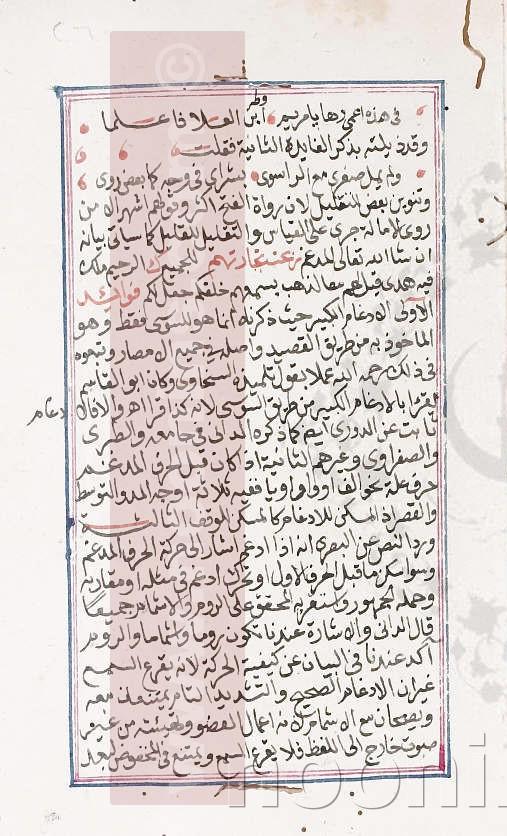 في هذه اعمى رها يا مريم ابن العلا فاعلما
وطر
وقد ذيلته بذكر الفايدة الثانية فقلت
ولم يمل صغرى مع الراسوى بشراي في وجه كا بعض روى
وتنوين بعض للتقليل لان رواة الفتح اكثر وقولهم اشهر الا من
روى الامالة جرى على القياس والتقليل كما سياتي بيانه
ان شا الله تعالى المدغم الرحيم ملك
فيه هدى قيل لهم لذهب بسمعهم خلقكم جعل لكم فوائد
الاولى الادغام الكبير حيث ذكرته انما هو للسوسي فقط وهو
الماخوذ به من طريق القصيد واصله جميع الامصار وتبعوه
في ذلك رحمه الله عملا بقول تلميذه السخاوي وكان ابو القاسم
يقرا بالادغام الكبير من طريق السوسي لانه كذا قرا اهـ والا فالا
دغام
ثابت عن الدوري ايضا كما ذكره الداني في جامعه والطبري
والصفراوي وغيرهم الثانية اذا كان قبل الحرف المدغم
حرف علة نحو الف او واو او يا ففيه ثلاثة اوجه المد والتوسط
والقصر اذ المسكن للادغام كالمسكن للوقف الثالثة
ورد النص عن البصري انه اذا ادغم اشار الى حركة الحرف المدغم
وسوا سكن ما قبل الحرف الاول او تحرك ادغم في مثله او مقاربه
وحمله الجمهور واستقر به المحقق على الروم والاشمام جميعا
قال الداني والاشارة عندنا تكون روما واشماما والروم
آكد عندنا في البيان عن كيفية الحركة لانه يقرع السمع
غير ان الادغام الصحيح والتشديد التام يمتنعان معه
ويصحان مع الاشمام لانه اعمال العضو وتهيئته من غير
صوت خارج الى اللفظ فلا يقرع السمع ويمتنع في المخفوض لبعد
noorli